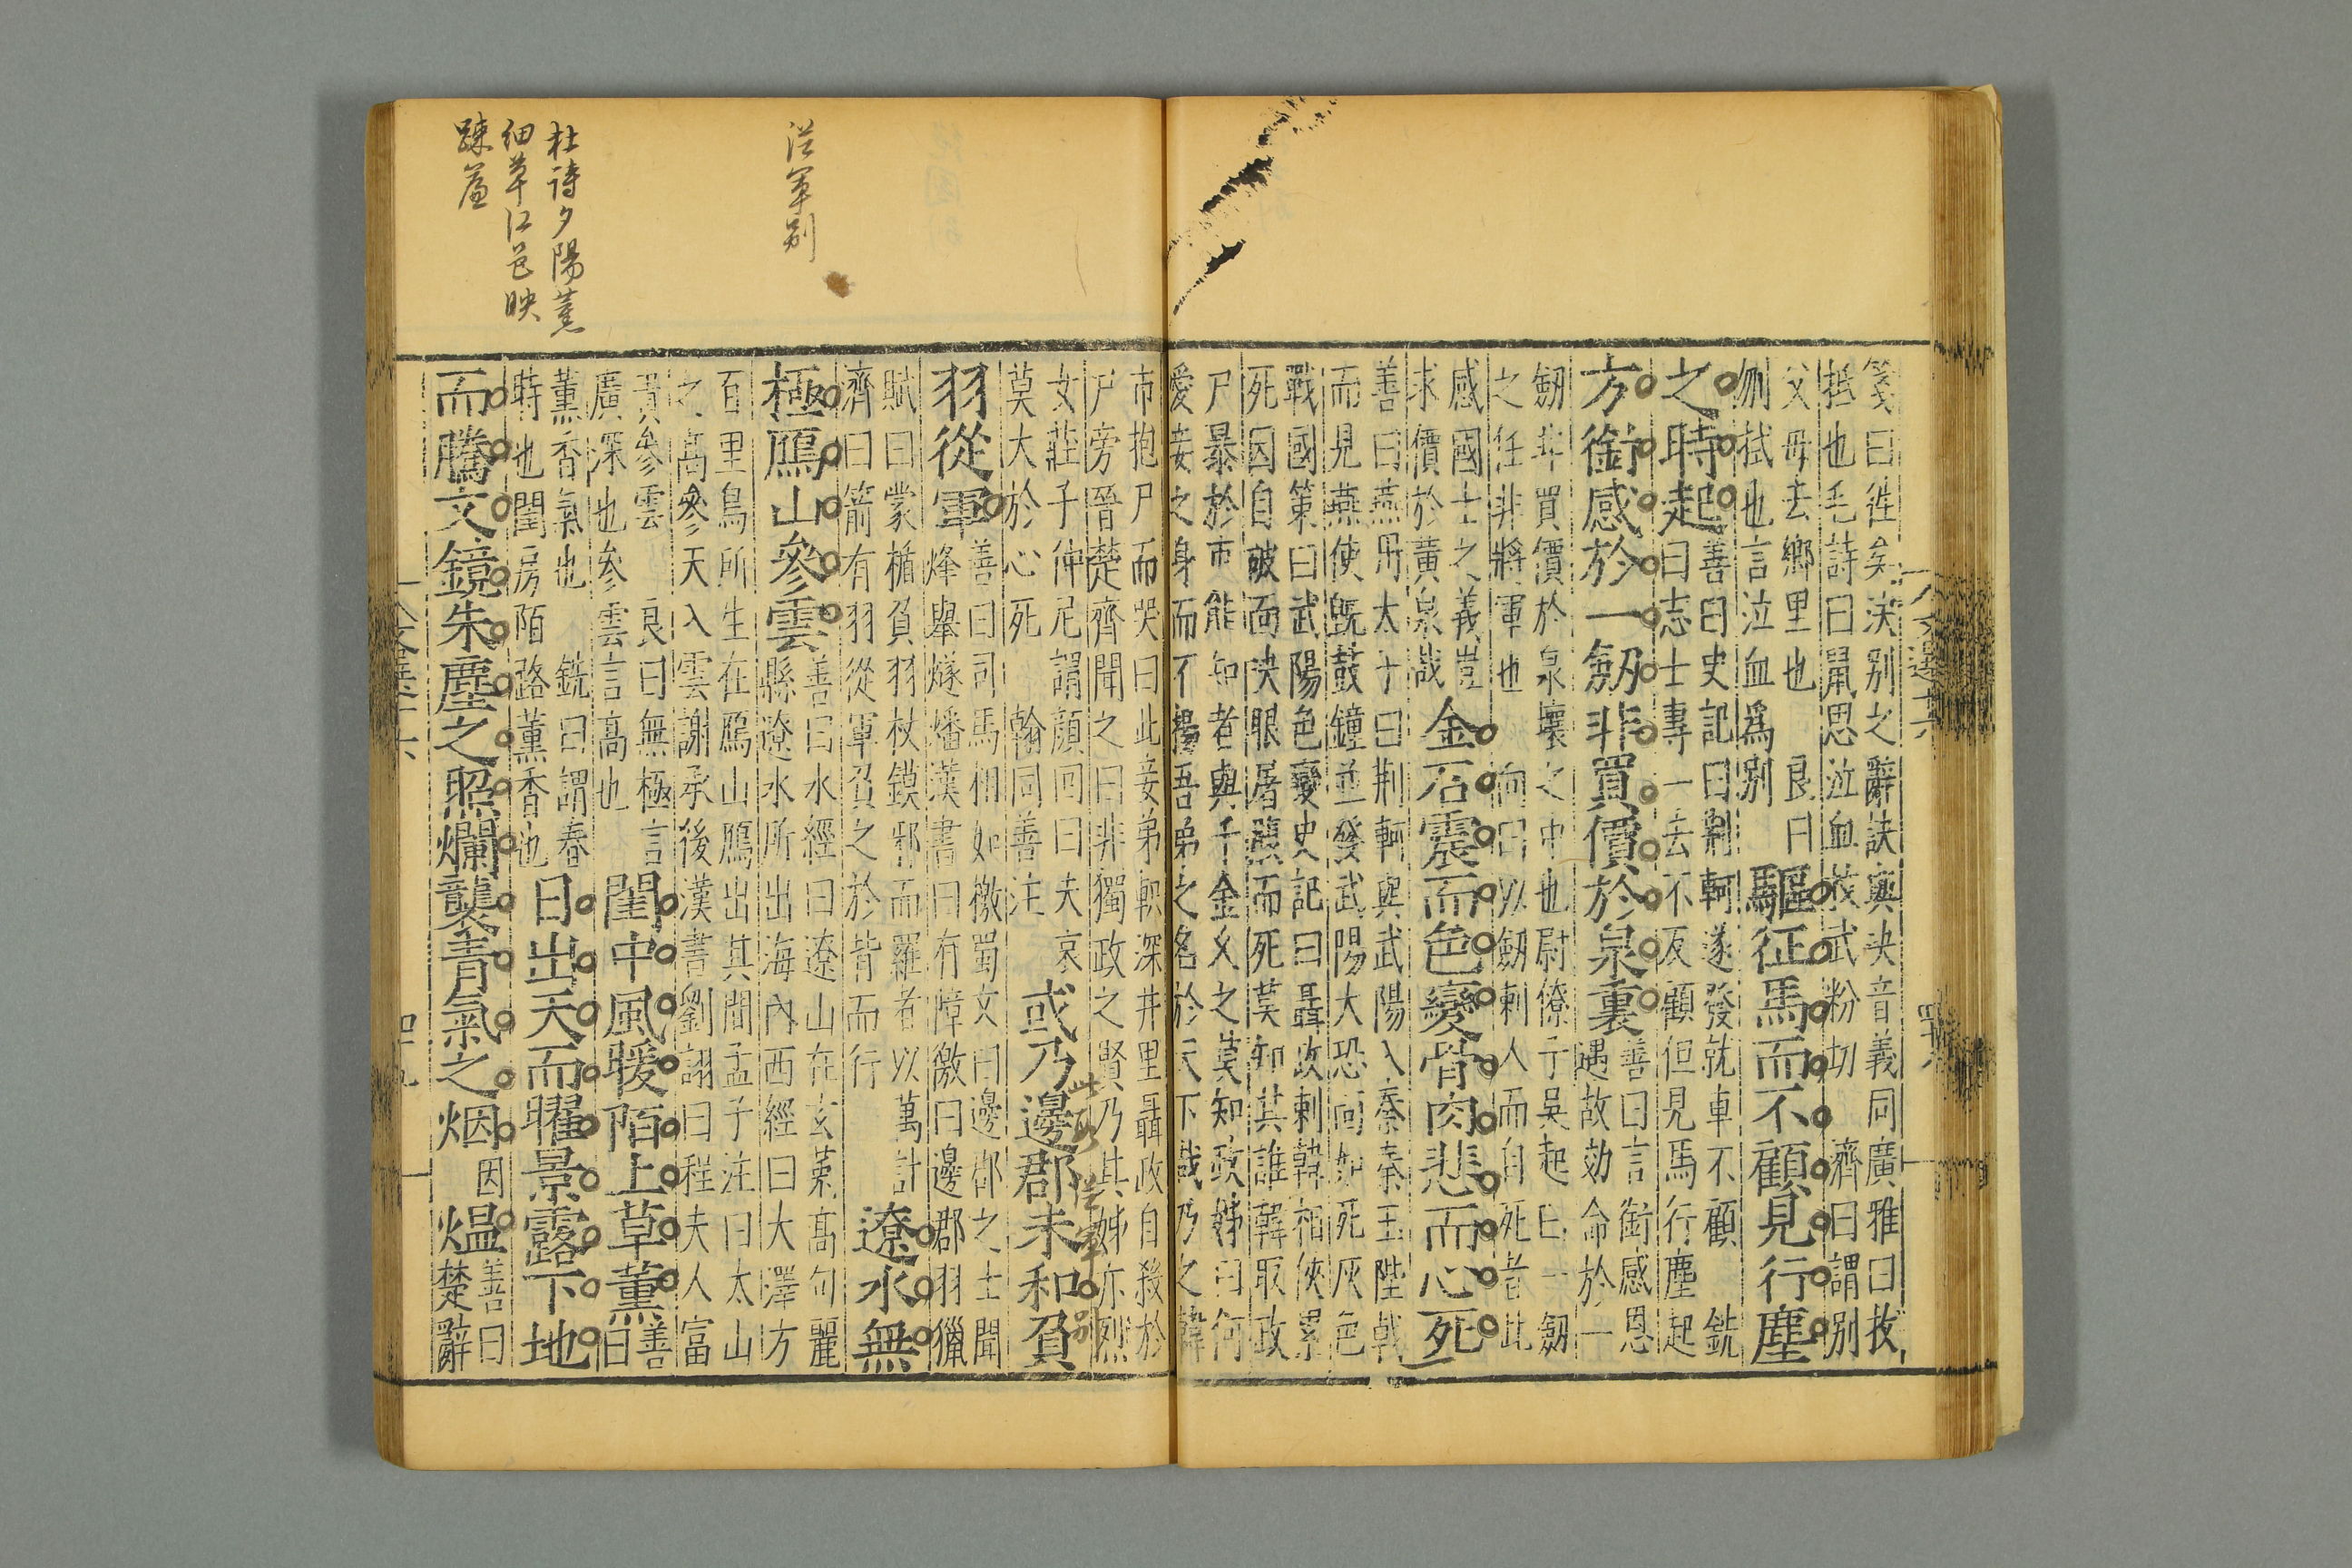 箋曰徃矣決別之辭訣與决音義同廣雅曰抆
抵也毛詩曰鼠思泣血抆武粉切 濟曰謂別
父母去鄉里也 良曰
刎拭也言泣血爲別
驅征馬而不顧見行塵
之時起
善曰史記曰荆軻遂發就車不顧 銑
曰志士專一去不反顧但見馬行塵起
方銜感於一劒非買價於泉裏
善曰言銜感恩
遇故効命於一
劒非買價於泉壤之中也尉僚子吳起曰一劒
之任非將軍也 向曰以劒刺人而自死者此
感國士之義豈
求價於黃泉哉
金石震而色變骨肉悲而心死
善曰燕丹太子曰荆軻與武陽入秦秦王陛戟
而見燕使旣鼓鐘並發武陽大恐面如死灰色
戰國策曰武陽色變史記曰聶政刺韓相俠累
死因自破面决眼屠腸而死莫知其誰韓取政
尸暴於市能知者與千金久之莫知政姊曰何
愛妾之身而不揚吾弟之名於天下哉乃之韓
市抱尸而哭曰此妾弟軹深井里聶政自殺於
尸旁晉楚齊聞之曰非獨政之賢乃其姊亦烈
女莊子仲尼謂顏回曰夫哀
莫大於心死 翰同善注
或乃邊郡未和負
羽從軍
善曰司馬相如檄蜀文曰邊郡之士聞
烽舉燧燔漢書曰有障徼曰邊郡羽獵
賦曰蒙楯負羽杖鏌邪而羅者以萬計
濟曰箭有羽從軍負之於背而行
遼水無
極鴈山參雲
善曰水經曰遼山在玄菟高句麗
縣遼水所出海內西經曰大澤方
百里鳥所生在鴈山鴈出其間孟子注曰太山
之高參天入雲謝承後漢書劉詡曰程夫人富
貴參雲 良曰無極言
廣深也參雲言高也
閨中風暖陌上草薰
善
曰
薰香氣也 銑曰謂春
時也閨房陌路薰香也
日出天而曜景露下地
而騰文鏡朱塵之照爛襲青氣之烟
因
煴
善曰
楚辭
從軍別
杜詩夕陽薰
細草江色映
踈簾